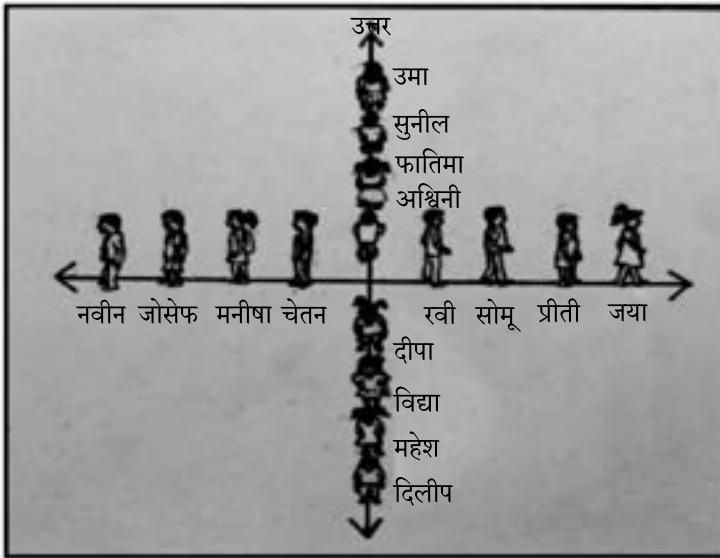 उत्तर
उमा
सुनील
फातिमा
अश्विनी
नवीन जोसेफ मनीषा चेतन रवी सोमू प्रीती जया
दीपा
विद्या
महेश
दिलीप